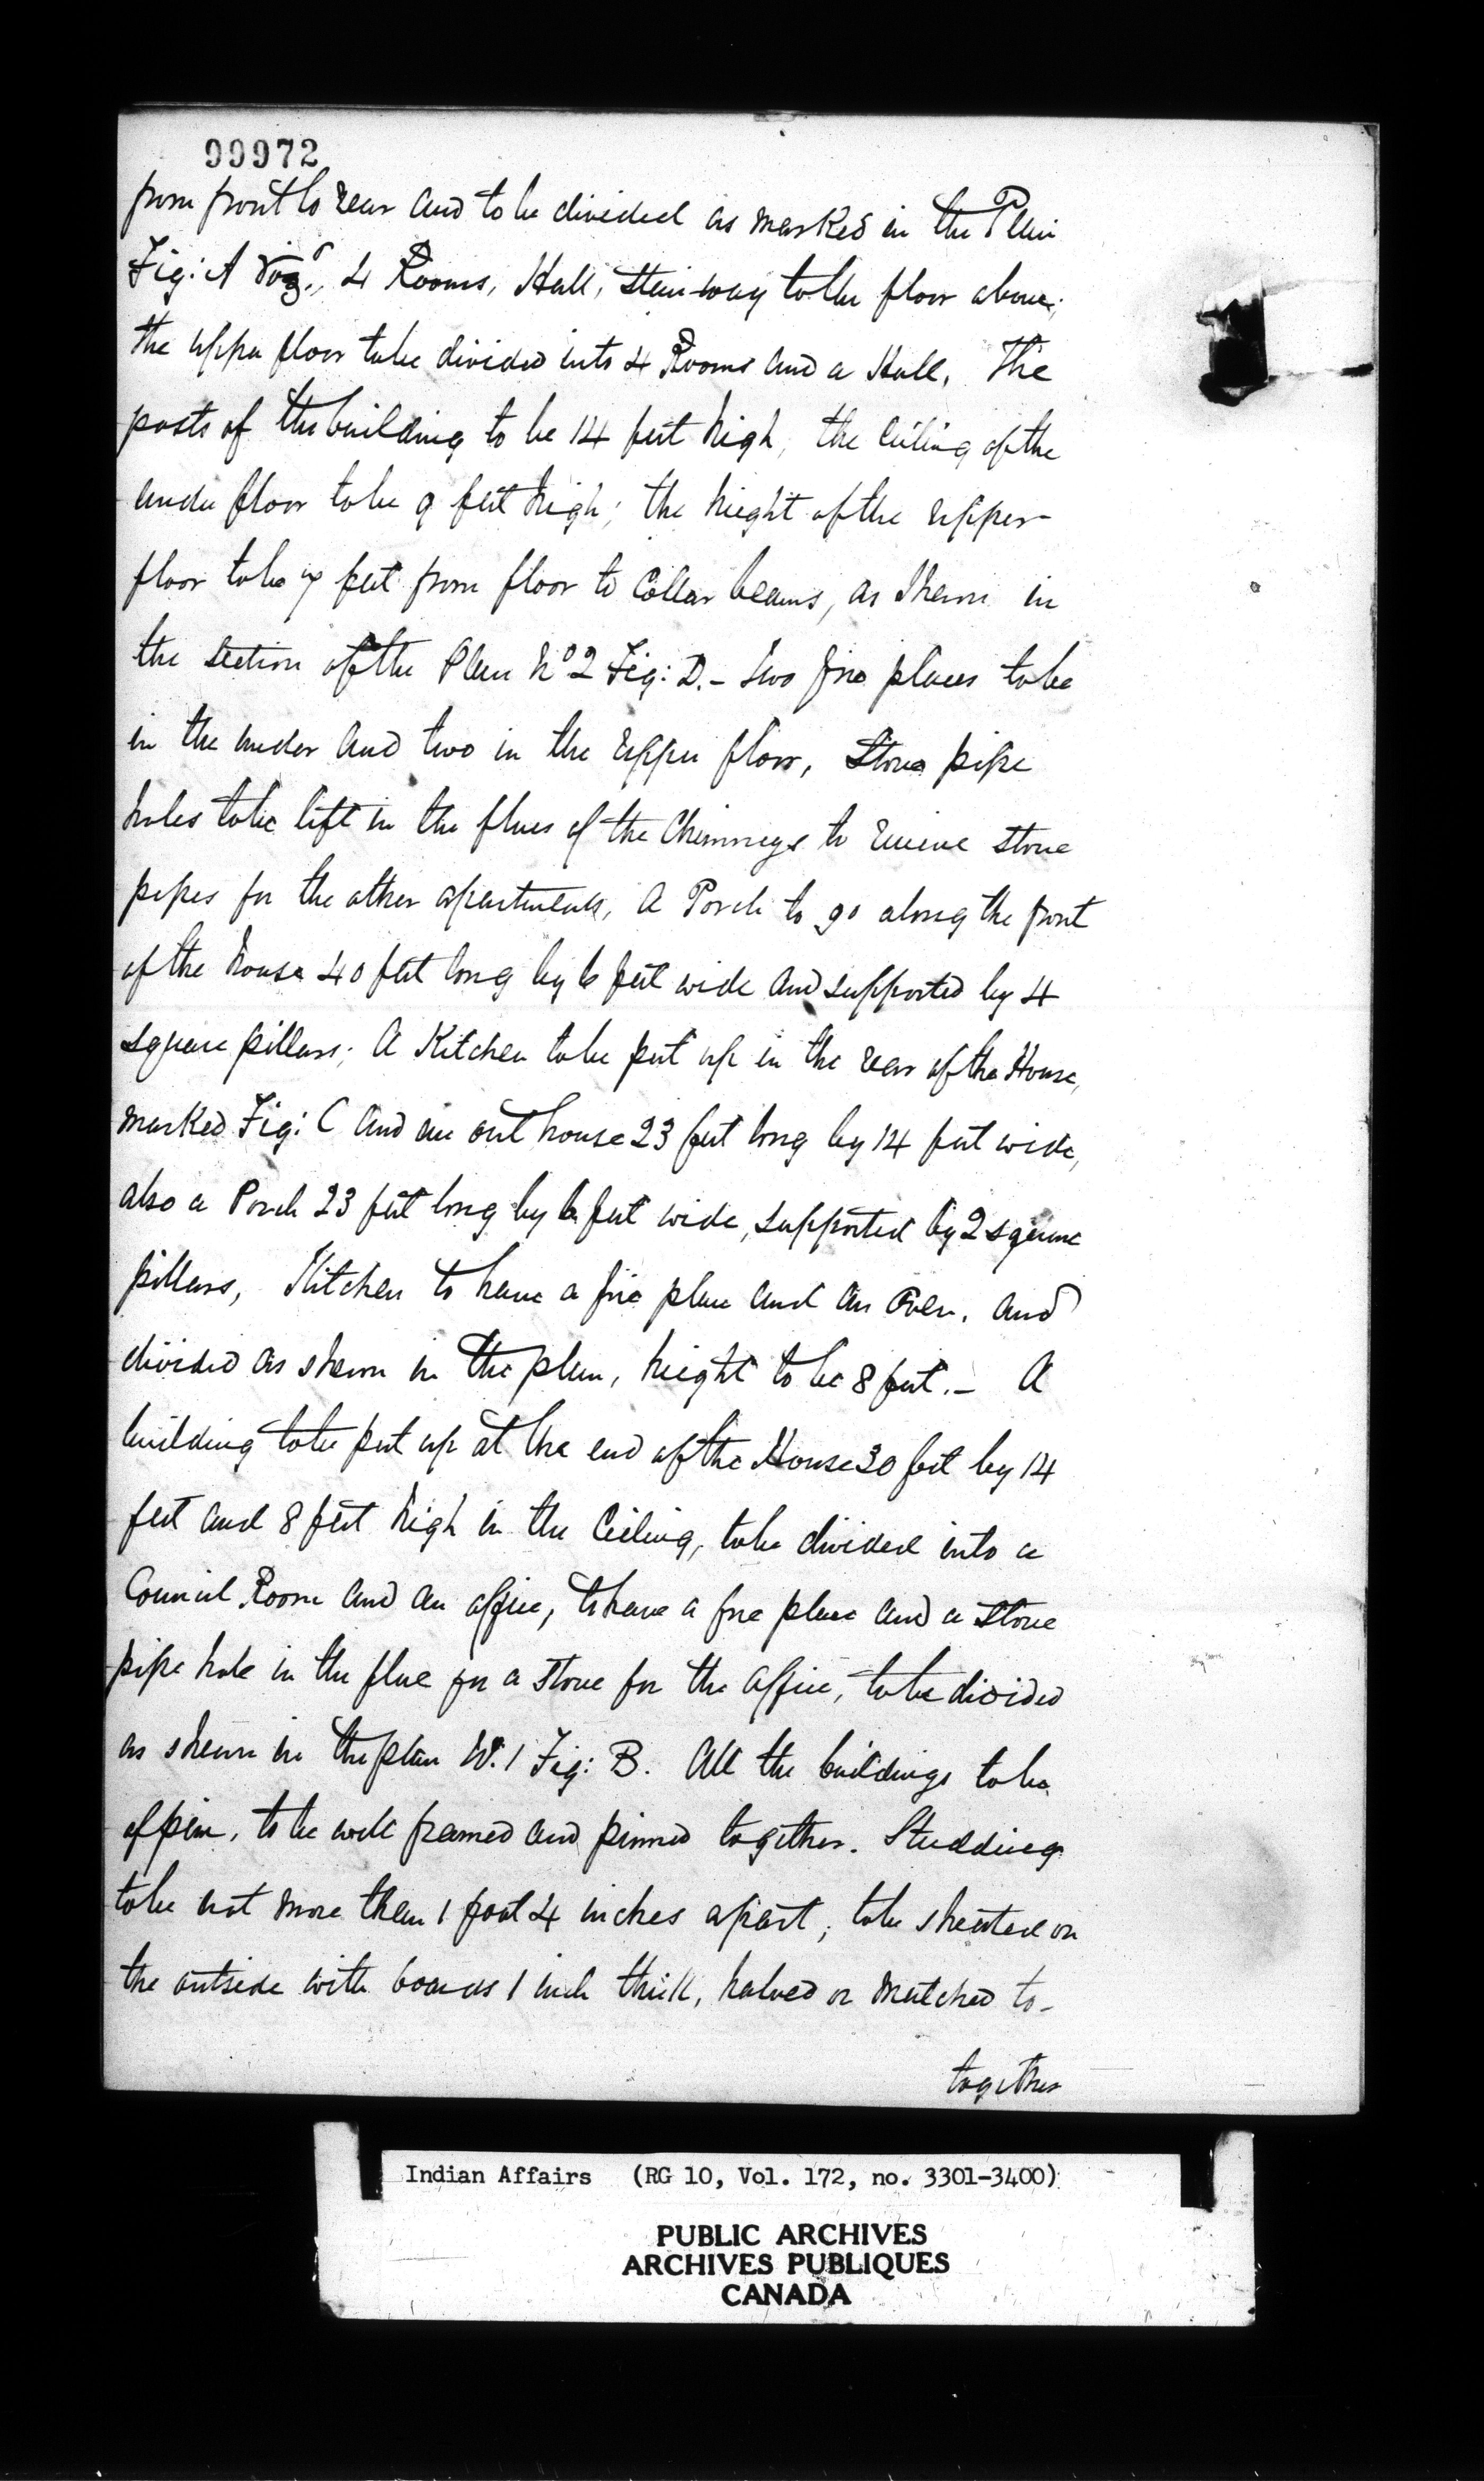 99972
from front to rear and to be divided as marked in the Plan
Fig: A Viz., 4 Rooms, Hall, Stair-way to the floor above;
the upper floor to be divided into 4 Rooms and a Hall. The
posts of the building to be 14 feet high, the Ceiling of the
under floor to be 9 feet high; the height of the upper
floor to be 7 feet from floor to Collar beams, as Shewn in
the Section of the Plan No 2 Fig: D. – two fire places to be
in the under and two in the upper floor, Stove pipe
holes to be left in the flues of the Chimneys to receive Stove
pipes for the other apartments, A Porch to go along the front
of the house 40 feet long by 6 feet wide and supported by 4
square pillars; A Kitchen to be put up in the rear of the House,
marked Fig: C and an out house 23 feet long by 14 feet wide,
also a Porch 23 feet long by 6 feet wide, supported by 2 square
pillars, Kitchen to have a fire place and an Oven, and
divided as shewn in the plan, height to be 8 feet. – A
building to be put up at the end of the House 30 feet by 14
feet and 8 feet high in the Ceiling, to be divided into a
Council Room and an office, to have a fire place and a Stove
pipe hole in the flue for a Stove for the office, to be divided
as shewn in the plan No. 1 Fig: B. All the buildings to be
of pine, to be well framed and pinned together. Studding
to be not more than 1 foot 4 inches apart; to be sheeted on
the outside with boards 1 inch thick, halved or matched to-
together
Indian Affairs (RG 10, Vol. 172, no. 3301-3400)
PUBLIC ARCHIVES
ARCHIVES PUBLIQUES
CANADA